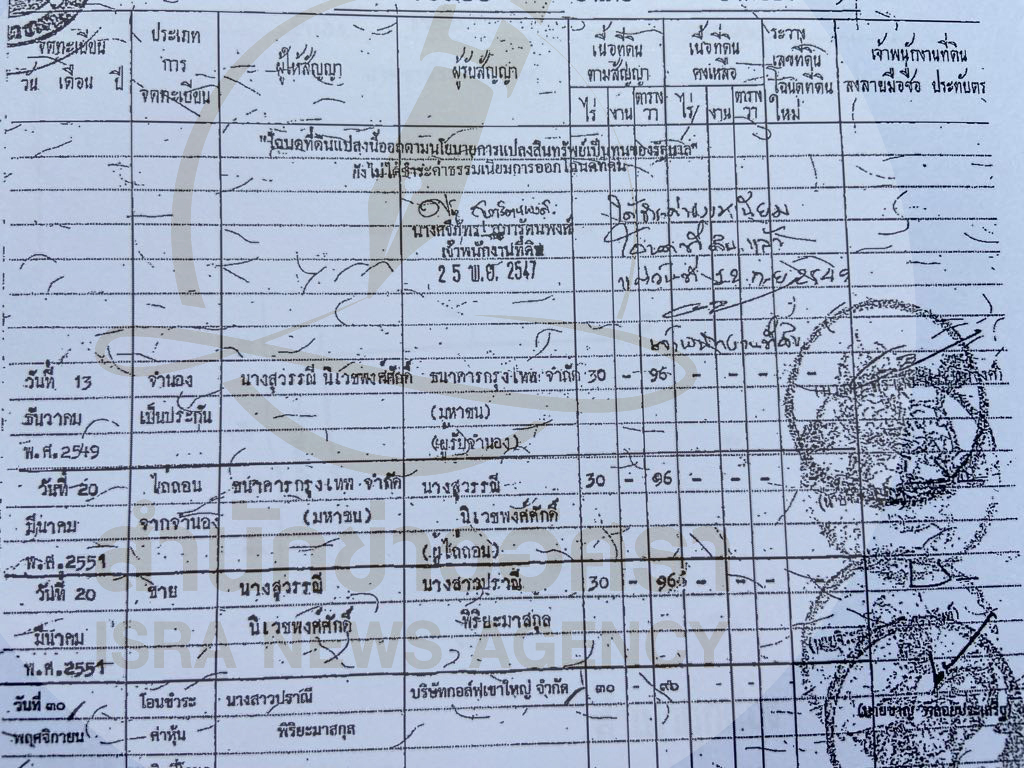 จดทะเบียน
วัน เดือน ปี
ประเภท
การ
จดทะเบียน
ผู้ให้สัญญา
ผู้รับสัญญา
เนื้อที่ดิน
ตามสัญญา
ไร่ งาน ตาราง
วา
เนื้อที่ดิน
คงเหลือ
ไร่ งาน ตาราง
วา
ระวาง
เลขที่ดิน
โฉนดที่ดิน
ใหม่
เจ้าพนักงานที่ดิน
ลงลายมือชื่อ ประทับตรา
"โฉนดที่ดินแปลงนี้ออกตามนโยบายการแปลงสินทรัพย์เป็นทุนของรัฐบาล"
ยังไม่ได้ชำระค่าธรรมเนียมการออกโฉนดที่ดิน
เจ้าพนักงานที่ดิน
25 พ.ย. 2547
ได้ชำระค่าธรรมเนียม
แล้ว
แต่วันที่ 12 ก.ย 2549
เจ้าพนักงานที่ดิน
วันที่ 13 จำนอง นางสุวรรณี นิเวชพงศ์ศักดิ์ ธนาคารกรุงเทพ จำกัด 30 - 96 - - - -
ธันวาคม เป็นประกัน (มหาชน)
พ.ศ.2549 (ผู้รับจำนอง)
วันที่ 20 ไถ่ถอน ธนาคารกรุงเทพ จำกัด นางสุวรรณี 30 - 96 - - - -
มีนาคม จากจำนอง (มหาชน) นิเวชพงศ์ศักดิ์
พ.ศ.2551 (ผู้ไถ่ถอน)
วันที่ 20 ขาย นางสุวรรณี นางสาวปราณี 30 - 96 - - - -
มีนาคม นิเวชพงศ์ศักดิ์ พิริยะมาสกุล
พ.ศ.2551
วันที่ ๓๐ โอนชำระ นางสาวปราณี บริษัทกอล์ฟเขาใหญ่ จำกัด ๓๐ - ๙๖
พฤศจิกายน ค่าหุ้น พิริยะมาสกุล
สำนักข่าวอิศรา
ISRA NEWS AGENCY